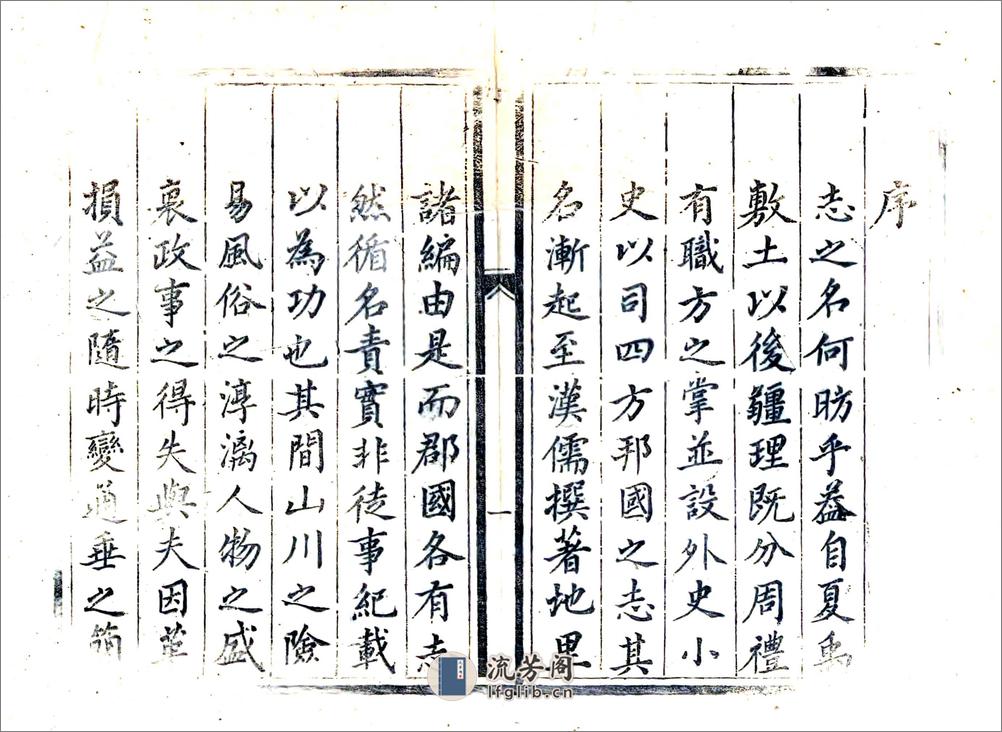 序
志之名何昉乎葢自夏禹
敷土以後疆理既分周禮
有職方之掌並設外史小
史以司四方邦國之志其
名漸起至漢儒撰著地里
諸編由是而郡國各有志
然循名責實非徒事紀載
以為功也其間山川之險
易風俗之淳漓人物之盛
衰政事之得失與夫因革
損益之隨時變通垂之簡
一
流芳阁
lfglib.cn